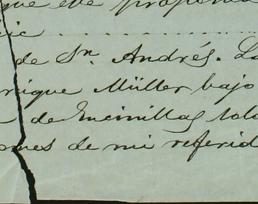 que ese propon
de Sn. Andrés. La
rique Müller bajo
de Encinillas
ones de mi referid